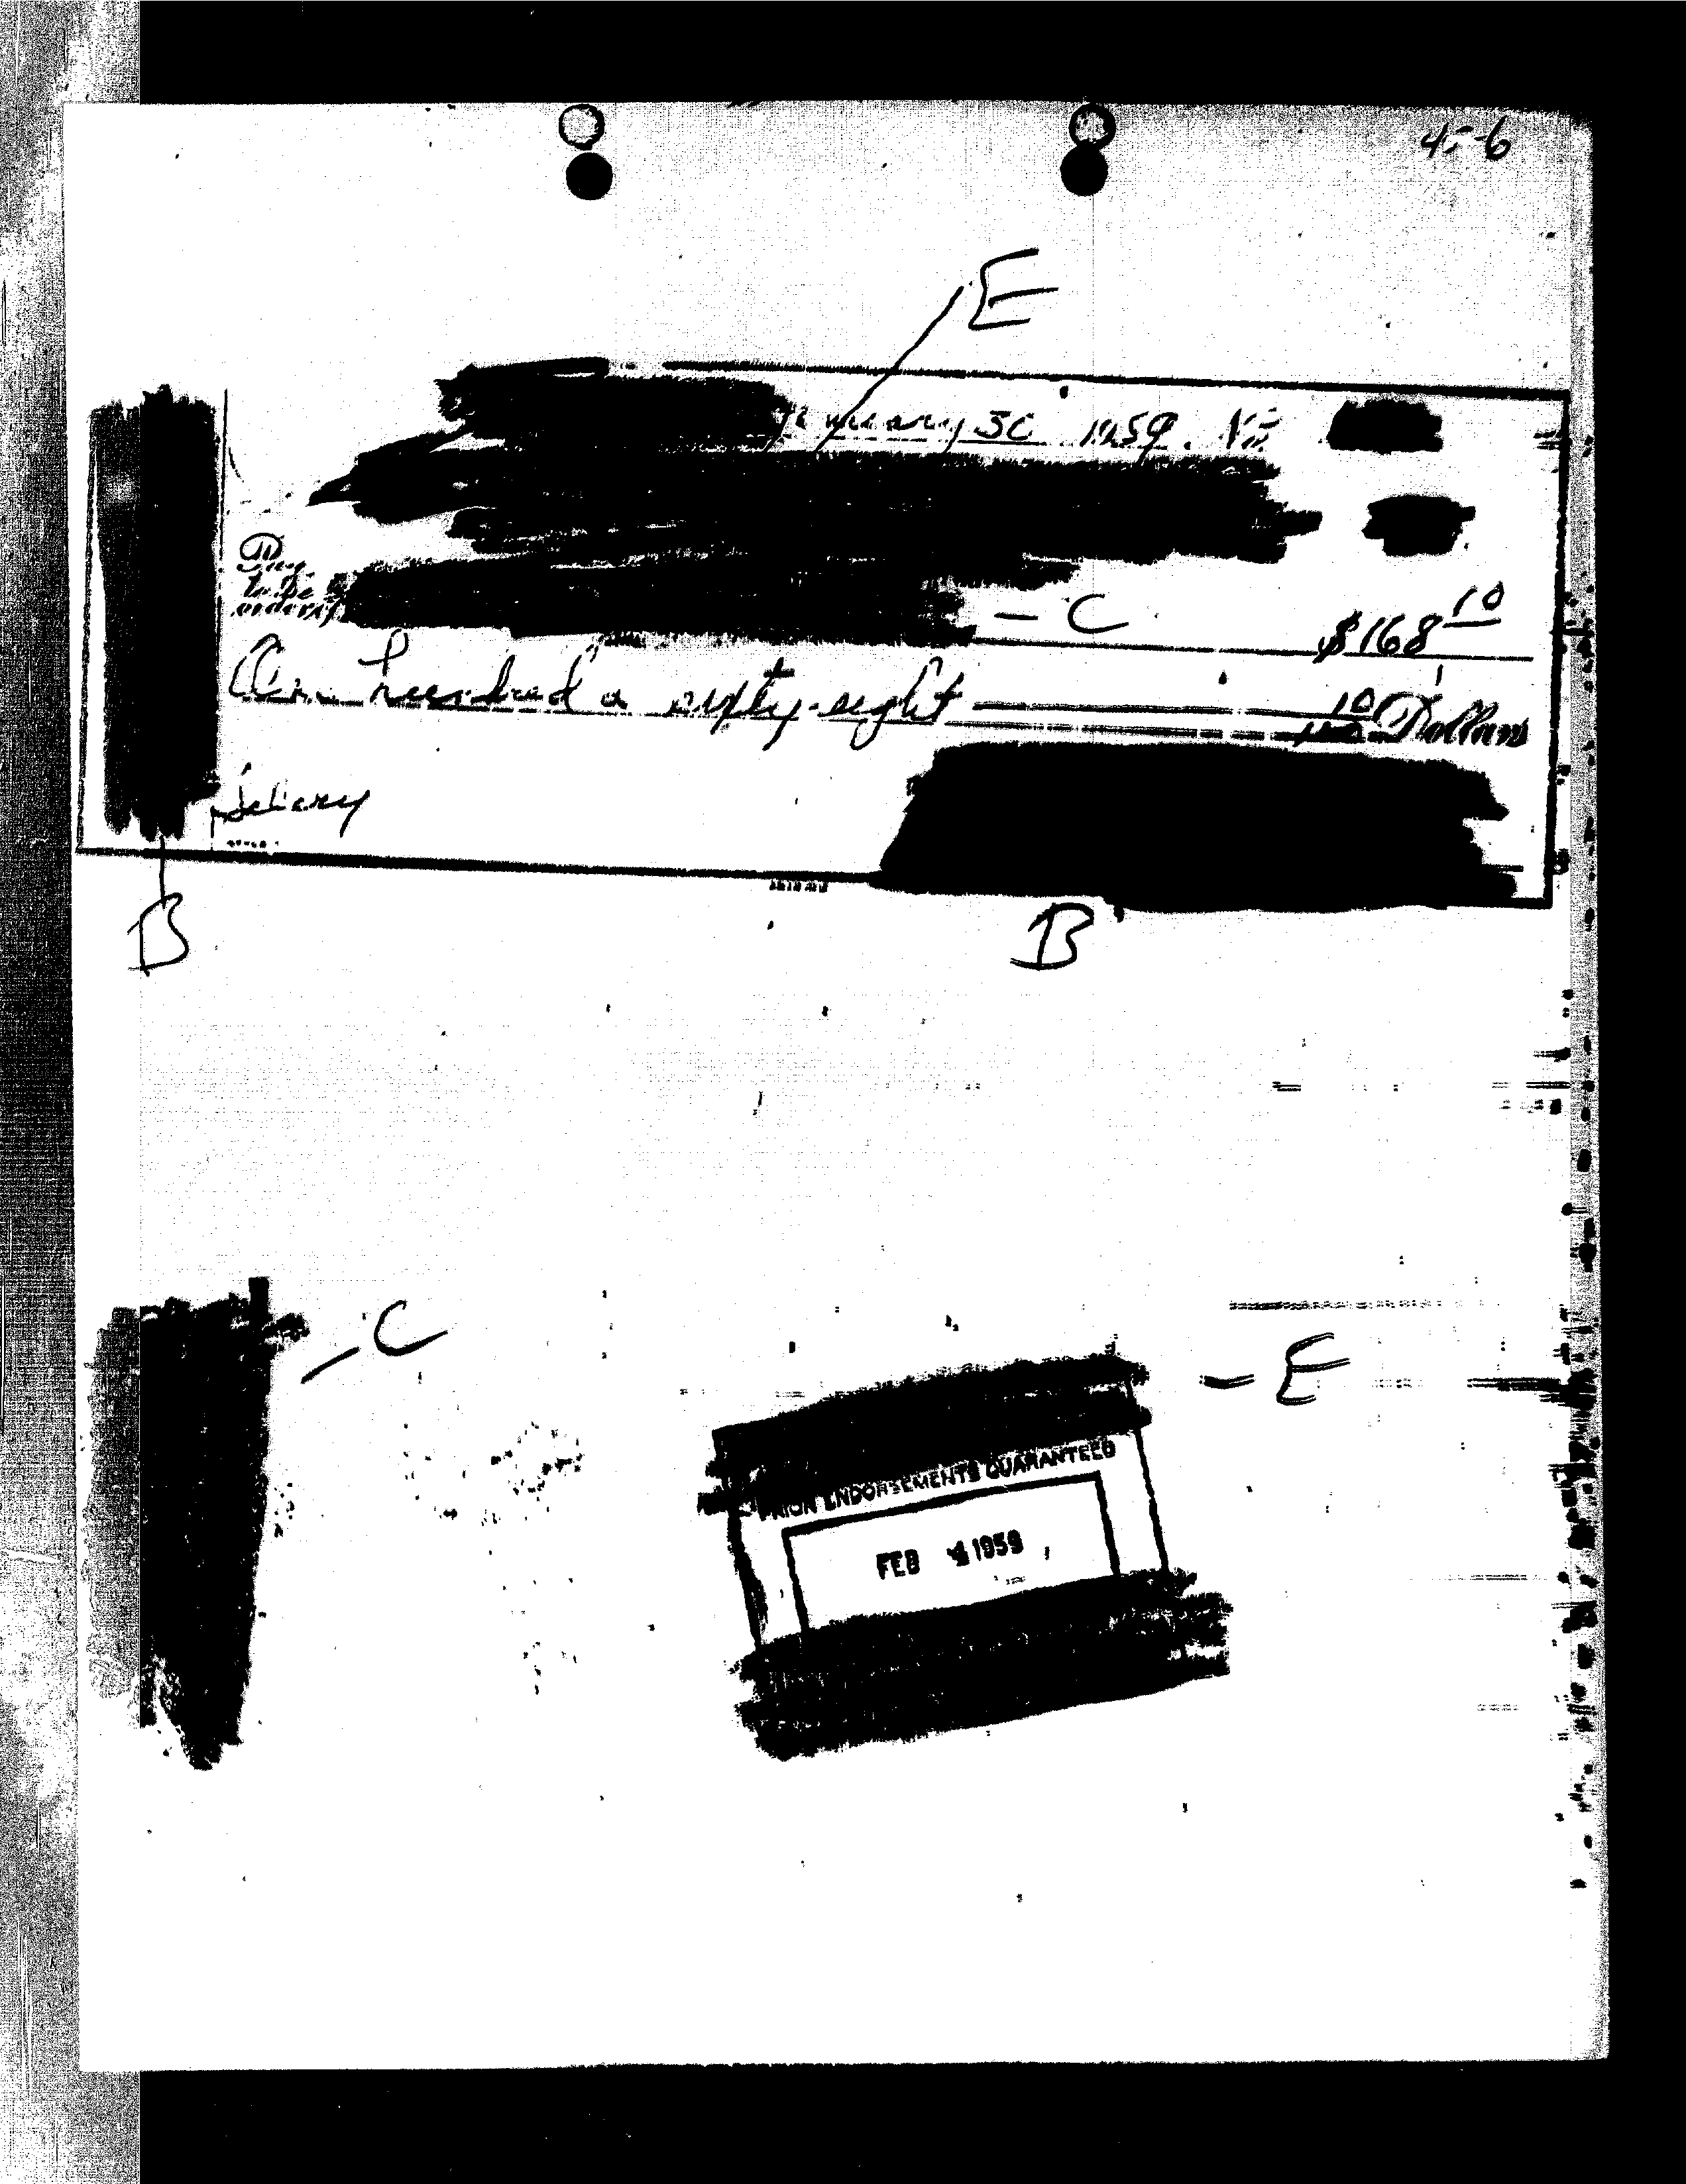 45-6
E
January 30 1959. No
Pay
to the
order of
— C $168 10
One hundred & sixty-eight 10/100 Dollars
Salary
B B
— C
— E
PRIOR ENDORSEMENTS GUARANTEED
FEB 4 1959